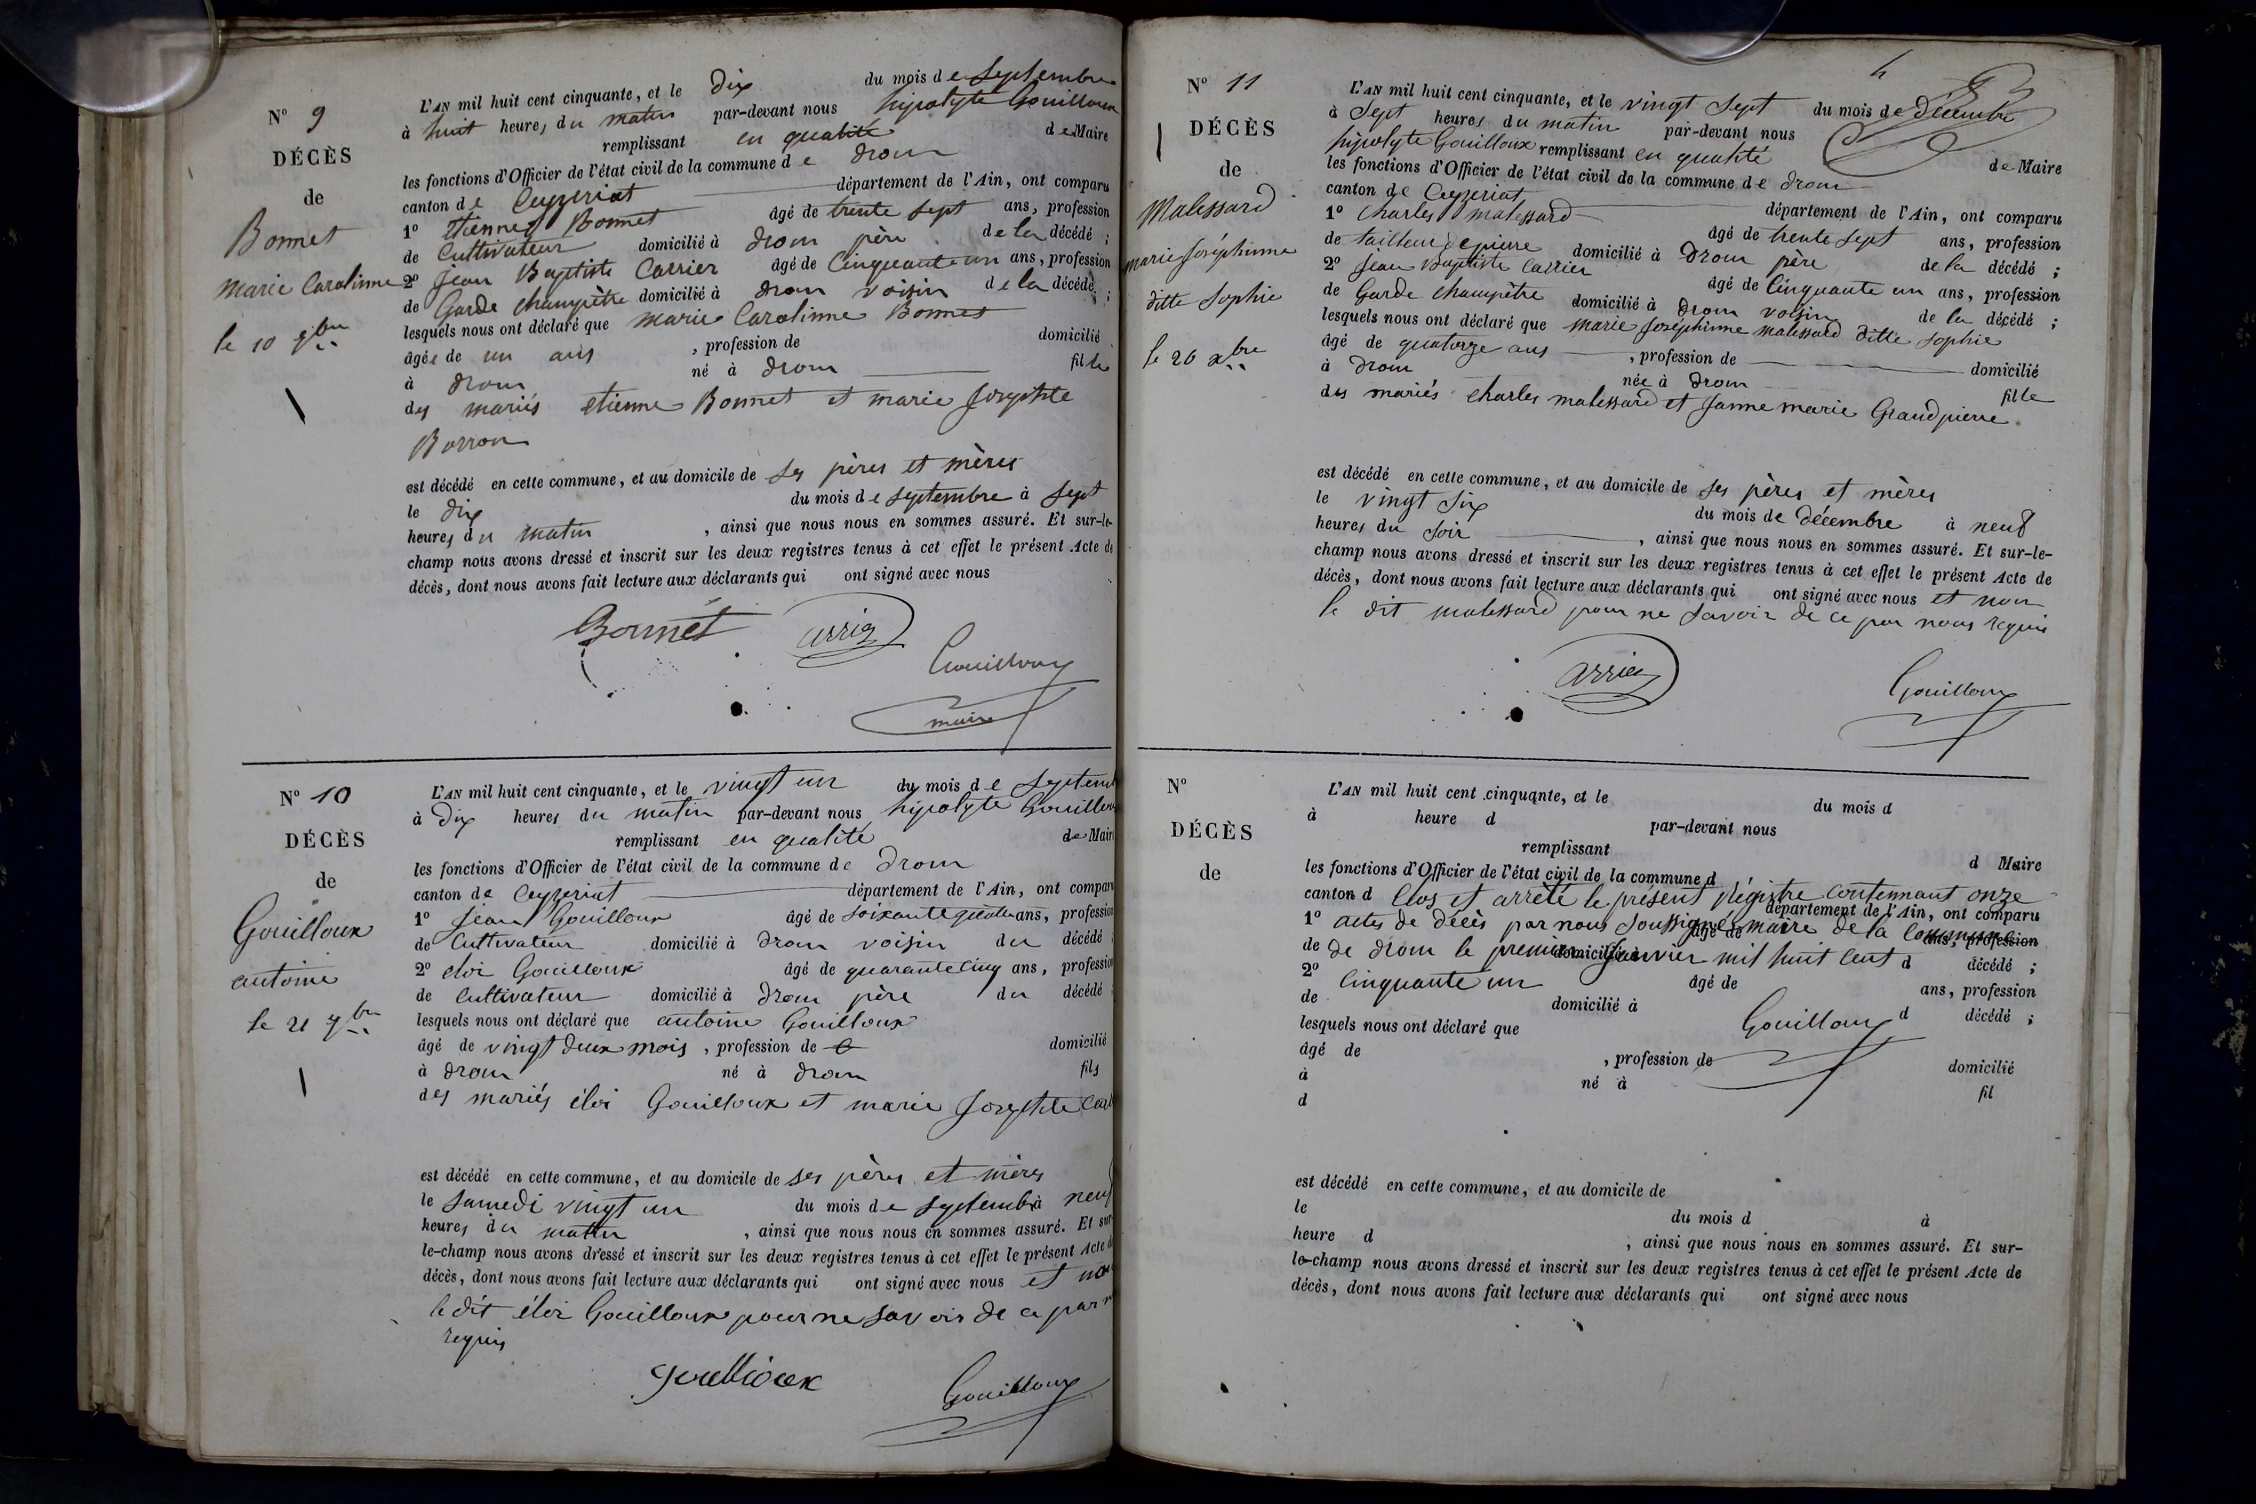 N° 9
DÉCÈS
de
Bonnet
marie Carolinne
le 10 7bre
L'AN mil huit cent cinquante, et le dix du mois de Septembre
à huit heures du matin par-devant nous hipolyte Gouilloux
remplissant en qualité de Maire
les fonctions d'Officier de l'état civil de la commune de drom
canton de Ceyzeriat département de l'Ain, ont comparu
1° Etienne Bonnet âgé de trente sept ans, profession
de Cultivateur domicilié à drom père de la décédé ;
2° Jean Baptiste Carrier âgé de Cinquante un ans, profession
de Garde champètre domicilié à drom voisin de la décédé ;
lesquels nous ont déclaré que marie Carolinne Bonnet
âgée de un ans , profession de domicilié
à drom né à drom fille
des mariés etienne Bonnet et marie Josephte
Borron
est décédé en cette commune, et au domicile de ses pères et mères
le dix du mois de septembre à sept
heures du matin , ainsi que nous nous en sommes assuré. Et sur-le-
champ nous avons dressé et inscrit sur les deux registres tenus à cet effet le présent Acte de
décès, dont nous avons fait lecture aux déclarants qui ont signé avec nous
Bonnet arrier
Gouilloux
maire
N° 10
DÉCÈS
de
Gouilloux
antoine
le 21 7bre
L'AN mil huit cent cinquante, et le vingt un du mois de Septem
à dix heures du matin par-devant nous hipolyte Gouillou
remplissant en qualité de Mair
les fonctions d'Officier de l'état civil de la commune de drom
canton de Ceyzeriat département de l'Ain, ont compar
1° Jean Gouilloux âgé de soixante quatre ans, professio
de Cultivateur domicilié à drom voisin du décédé
2° eloi Gouilloux âgé de quarante cinq ans, professio
de Cultivateur domicilié à drom père du décédé
lesquels nous ont déclaré que antoine Gouilloux
âgé de vingt deux mois , profession de domicilié
à drom né à drom fils
des mariés éloi Gouilloux et marie Josephte
est décédé en cette commune, et au domicile de ses pères et mères
le samedi vingt un du mois de septembre à neuf
heures du matin , ainsi que nous nous en sommes assuré. Et sur
le-champ nous avons dressé et inscrit sur les deux registres tenus à cet effet le présent Acte d
décès, dont nous avons fait lecture aux déclarants qui ont signé avec nous et non
le dit éloi Gouilloux pour ne savoir de ce par
requis
Gouilloux Gouilloux
4
N° 11
DÉCÈS
de
Malessard
marie Joséphinne
ditte Sophie
le 26 xbre
L'AN mil huit cent cinquante, et le vingt sept du mois de décembre
à Sept heures du matin par-devant nous
hipolyte Gouilloux remplissant en qualité de Maire
les fonctions d'Officier de l'état civil de la commune de drom
canton de Ceyzeriat département de l'Ain, ont comparu
1° Charles malessard âgé de trente sept ans, profession
de tailleur de pierre domicilié à drom père de la décédé ;
2° Jean Baptiste Carrier âgé de Cinquante un ans, profession
de Garde champètre domicilié à drom voisin de la décédé ;
lesquels nous ont déclaré que marie Joséphinne malessard ditte Sophie
âgé de quatorze ans , profession de domicilié
à drom née à drom fille
des mariés charles malessard et Janne marie Grandpierre
est décédé en cette commune, et au domicile de ses pères et mères
le vingt six du mois de décembre à neuf
heures du soir , ainsi que nous nous en sommes assuré. Et sur-le-
champ nous avons dressé et inscrit sur les deux registres tenus à cet effet le présent Acte de
décès, dont nous avons fait lecture aux déclarants qui ont signé avec nous et non
le dit malessard pour ne savoir de ce par nous requis
arrier Gouilloux
N°
DÉCÈS
de
L'AN mil huit cent cinquante, et le du mois d
à heure d par-devant nous
remplissant d Maire
les fonctions d'Officier de l'état civil de la commune d
canton d département de l'Ain, ont comparu
Clos et arrêté le présent régistre contennant onze
1° âgé de ans, profession
actes de décès par nous soussignés maire de la Commune
de domicilié à d décédé ;
de drom le premier Janvier mil huit cent
2° âgé de ans, profession
Cinquante un
de domicilié à d décédé ;
Gouilloux
lesquels nous ont déclaré que
âgé de , profession de domicilié
à né à fil
d
est décédé en cette commune, et au domicile de
le du mois d à
heure d , ainsi que nous nous en sommes assuré. Et sur-
le-champ nous avons dressé et inscrit sur les deux registres tenus à cet effet le présent Acte de
décès, dont nous avons fait lecture aux déclarants qui ont signé avec nous